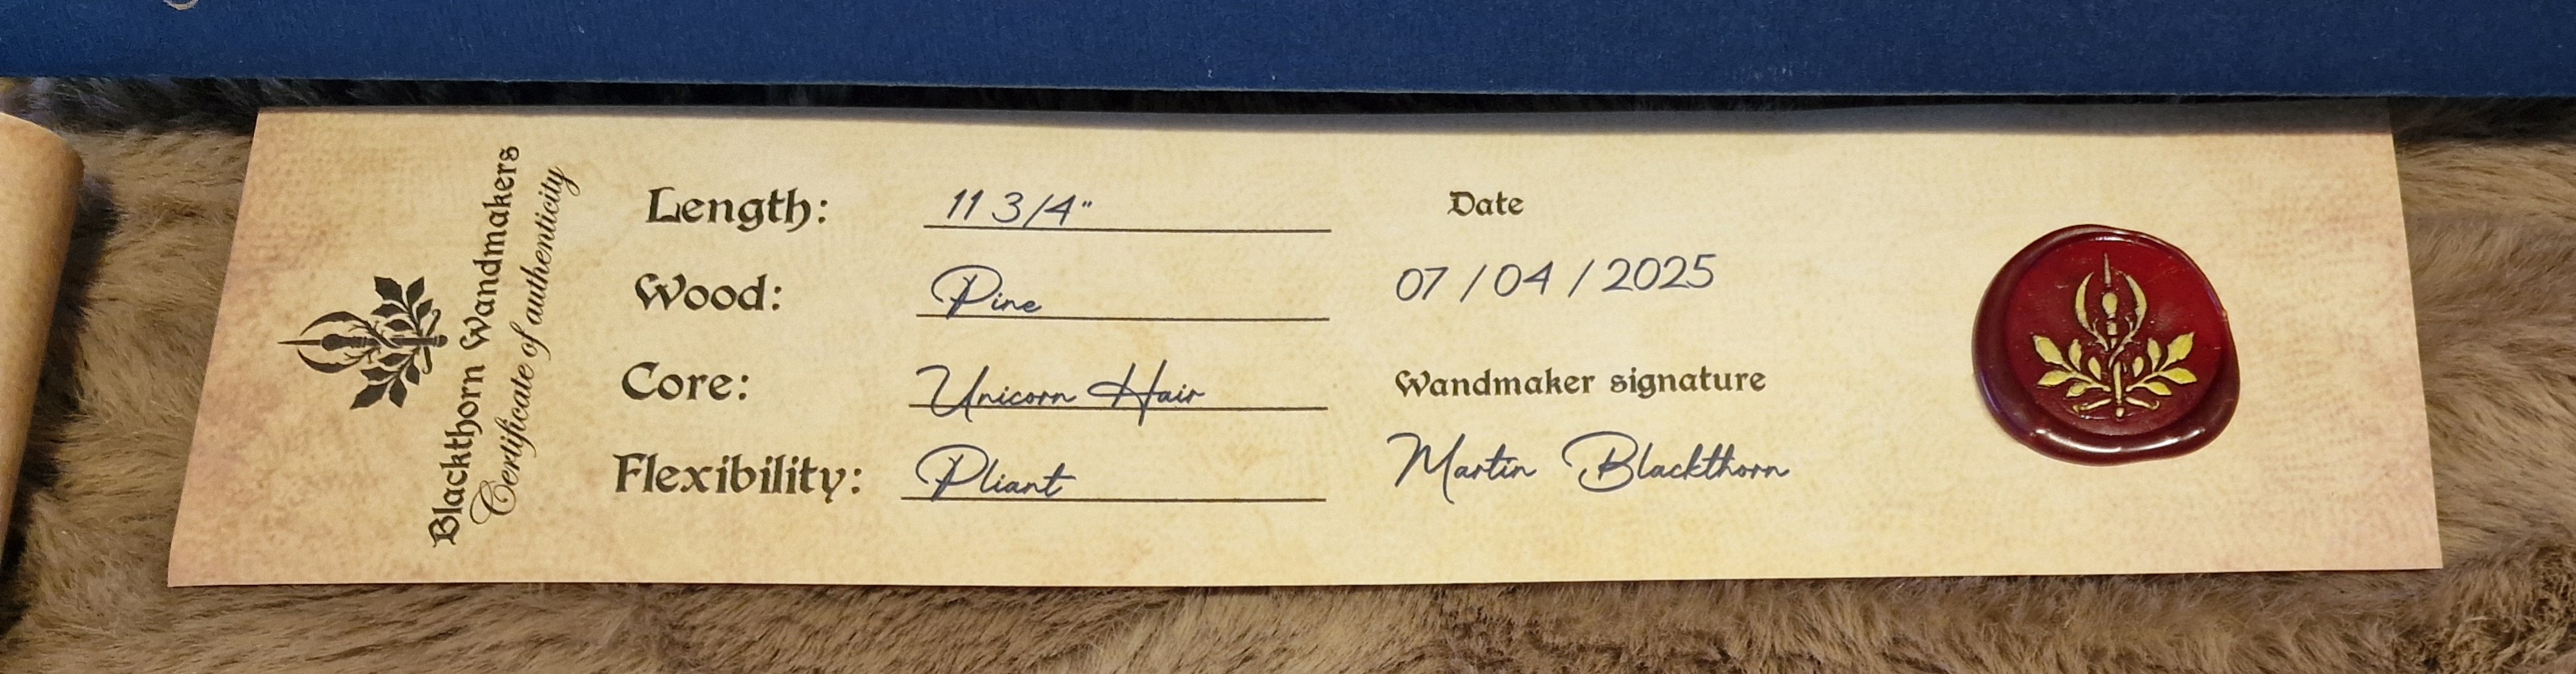 Blackthorn Wandmakers
Certificate of authenticity
Length: 11 3/4"
Wood: Pine
Core: Unicorn Hair
Flexibility: Pliant
Date
07 / 04 / 2025
Wandmaker signature
Martin Blackthorn